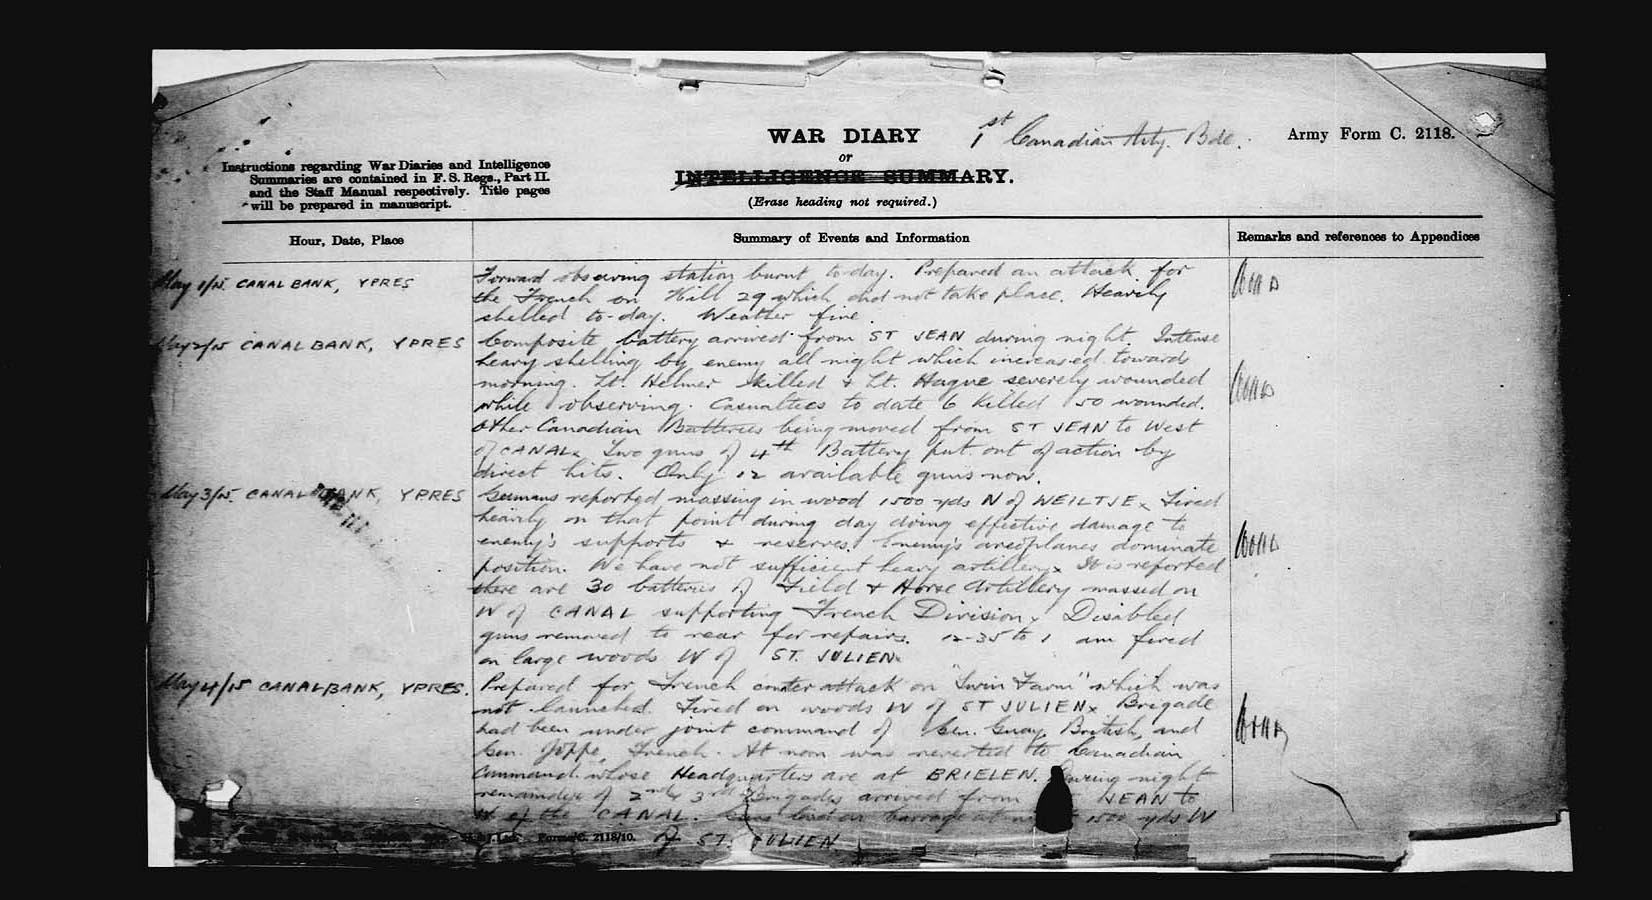 WAR DIARY
1st Canadian Arty. Bde.
Army Form C. 2118.
or
INTELLIGENCE SUMMARY.
(Erase heading not required.)
Instructions regarding War Diaries and Intelligence
Summaries are contained in F. S. Regs., Part II.
and the Staff Manual respectively. Title pages
will be prepared in manuscript.
Hour, Date, Place
Summary of Events and Information
Remarks and references to Appendices
May 1/15. CANAL BANK, YPRES
Forward observing station burnt to-day. Prepared an attack for
the French on Hill 29 which did not take place. Heavily
shelled to-day. Weather fine.
May 2/15 CANAL BANK, YPRES
Composite battery arrived from ST JEAN during night. Intense
heavy shelling by enemy all night which increased towards
morning. Lt. Helmer killed & Lt. Hague severely wounded
while observing. Casualties to date 6 killed 50 wounded.
Other Canadian Batteries being moved from ST JEAN to West
of CANAL. Two guns of 4th Battery put out of action by
direct hits. Only 12 available guns now.
May 3/15. CANAL BANK, YPRES
Germans reported massing in wood 1500 yds N of WEILTJE. Fired
heavily on that point during day doing effective damage to
enemy's supports & reserves. Enemy's areoplanes dominate
position. We have not sufficient heavy artillery. It is reported
there are 30 batteries of Field & Horse Artillery massed on
W of CANAL supporting French Division. Disabled
guns removed to rear for repairs. 12-35 to 1 am fired
on large woods W of ST. JULIEN.
May 4/15 CANAL BANK, YPRES.
Prepared for French counter attack on "Twin Farm" which was
not launched. Fired on woods W of ST JULIEN. Brigade
had been under joint command of Gen. British, and
Gen. Joppe, French. At noon was reverted to Canadian
Command whose Headquarters are at BRIELEN. During night
remainder of 2nd & 3rd Brigades arrived from JEAN to
W of the CANAL. barrage at 1500 yds W
of ST. JULIEN
Forms/C. 2118/10.